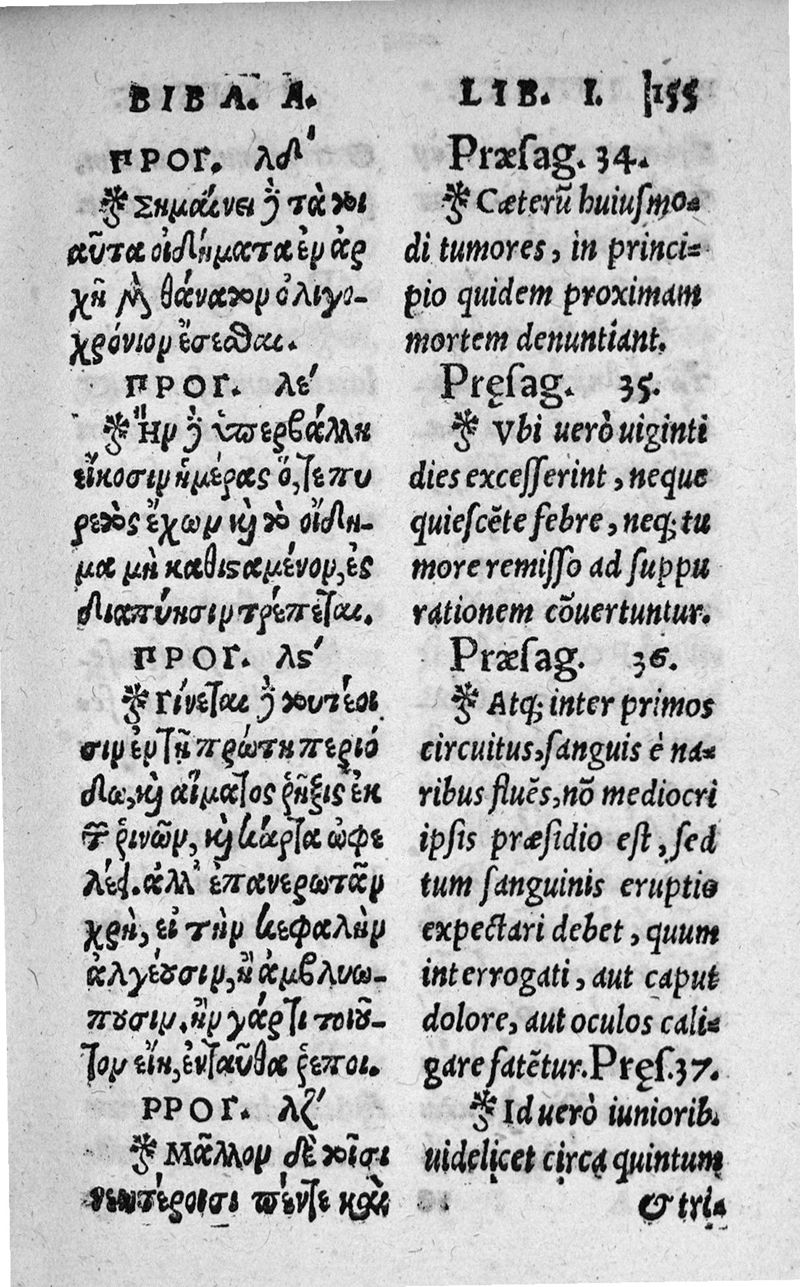 ΒΙΒΛ. Α.
ΠΡΟΓ. λδʹ
Σημαίνει δὲ τὰ τοι
αῦτα οἰδήματα ἐν ἀρ
χῇ μὲν θάνατον ὀλιγο-
χρόνιον ἔσεσθαι.
ΠΡΟΓ. λεʹ
Ἢν δὲ ὑπερβάλλῃ
εἴκοσιν ἡμέρας ὅ,τε πυ
ρετὸς ἔχων καὶ τὸ οἴδη-
μα μὴ καθιστάμενον, ἐς
διαπύησιν τρέπεται.
ΠΡΟΓ. λϛʹ
Γίνεται δὲ τουτέοι
σιν ἐν τῇ πρώτῃ περιό
δῳ, καὶ αἵματος ῥῆξις ἐκ
τῶν ῥινῶν, καὶ κάρτα ὠφε
λέει. ἀλλ' ἐπανερωτᾶν
χρὴ, εἰ τὴν κεφαλὴν
ἀλγέουσιν, ἢ ἀμβλυω-
πουσιν. ἢν γάρ τι τοιοῦ-
τον εἴη, ἐνταῦθα ῥέποι.
ΡΡΟΓ. λζʹ
Μᾶλλον δὲ τοῖσι
νεωτέροισι πέντε καὶ
LIB. I. 155
Præsag. 34.
Cæterũ huiusmo-
di tumores, in princi-
pio quidem proximam
mortem denuntiant.
Pręsag. 35.
Vbi uerò uiginti
dies excesserint, neque
quiescẽte febre, neq; tu
more remisso ad suppu
rationem cõuertuntur.
Præsag. 36.
Atq; inter primos
circuitus, sanguis è na-
ribus fluẽs, nõ mediocri
ipsis præsidio est, sed
tum sanguinis eruptio
expectari debet, quum
interrogati, aut caput
dolore, aut oculos cali-
gare fatẽtur. Pręs. 37.
Id uerò iuniorib.
uidelicet circa quintum
& tri-